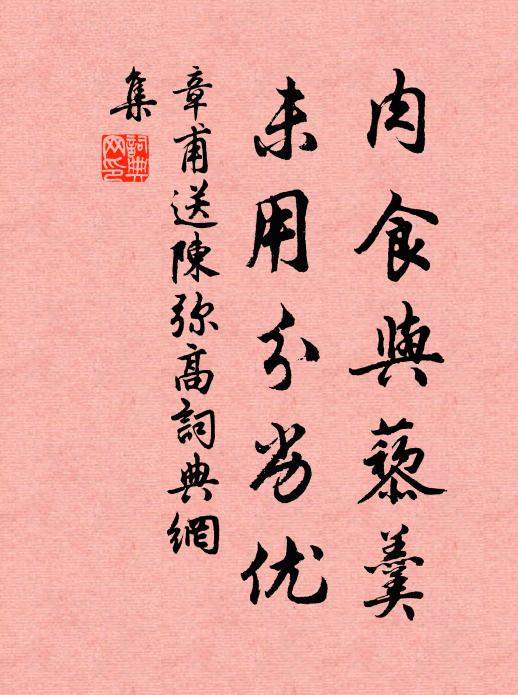 肉食與藜羹
未用分劣优
章甫送陳弥高詞典網
集
詞典网印